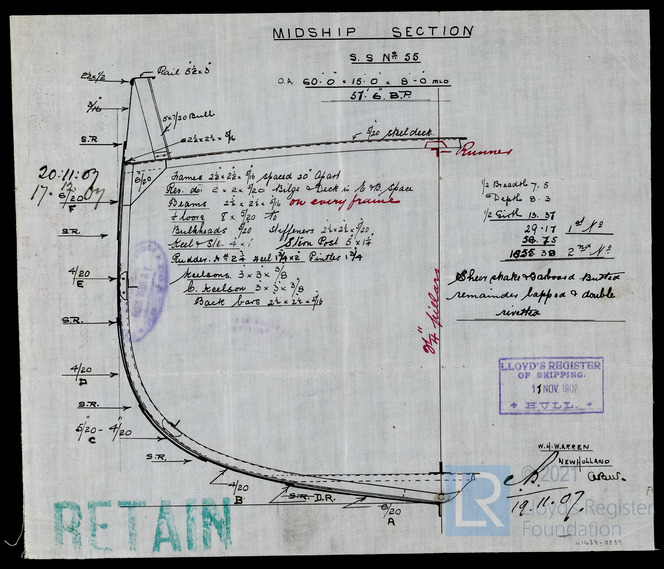 MIDSHIP SECTION
S.S Nº 55
O.A 60·0 × 15·0 × 8·0 MLD
57' 6" B.P.
Rail 5½ × 3"
2½ × ½
3/16
5 × 7/20 Bulb
S.R
6/20
5/20 steel deck
Runner
20·11·07
17·12·07
6/20
F
Frames 2½ × 2½ × 5/16 spaced 20" Apart
Rev. do 2 × 2 × 5/20 Bilge & Deck in E & B. Space
Beams 2½ × 2½ × 5/16 on every frame
Floors 8 × 5/20 to
Bulkheads 5/20 Stiffeners 2½ × 2½ × 5/20
Keel & Ste. 4 × 1 Stern Post 5 × 1¼
Rudder Keelsons 3 × 3 × 3/8
C. Keelson 3 × 3 × 3/8
Back bars 2½ × 2½ × 5/16
S.R.
4/20
E
S.R.
4/20
D
S.R.
5/20 - 4/20
C
S.R.
4/20
B
S.R. D.R.
6/20
A
2¼" pillars
½ Breadth 7.5
Depth 8.3
½ Girth 13.37
29.17 1st Nº
2nd Nº
Sheer strake & Garboard Butted
remainder lapped & double
rivetted
LLOYD'S REGISTER
OF SHIPPING.
NOV. 1907
HULL.
W.H. WARREN
NEW HOLLAND
19.11.07.
RETAIN
© 2021
LR
Lloyd's Register
Foundation